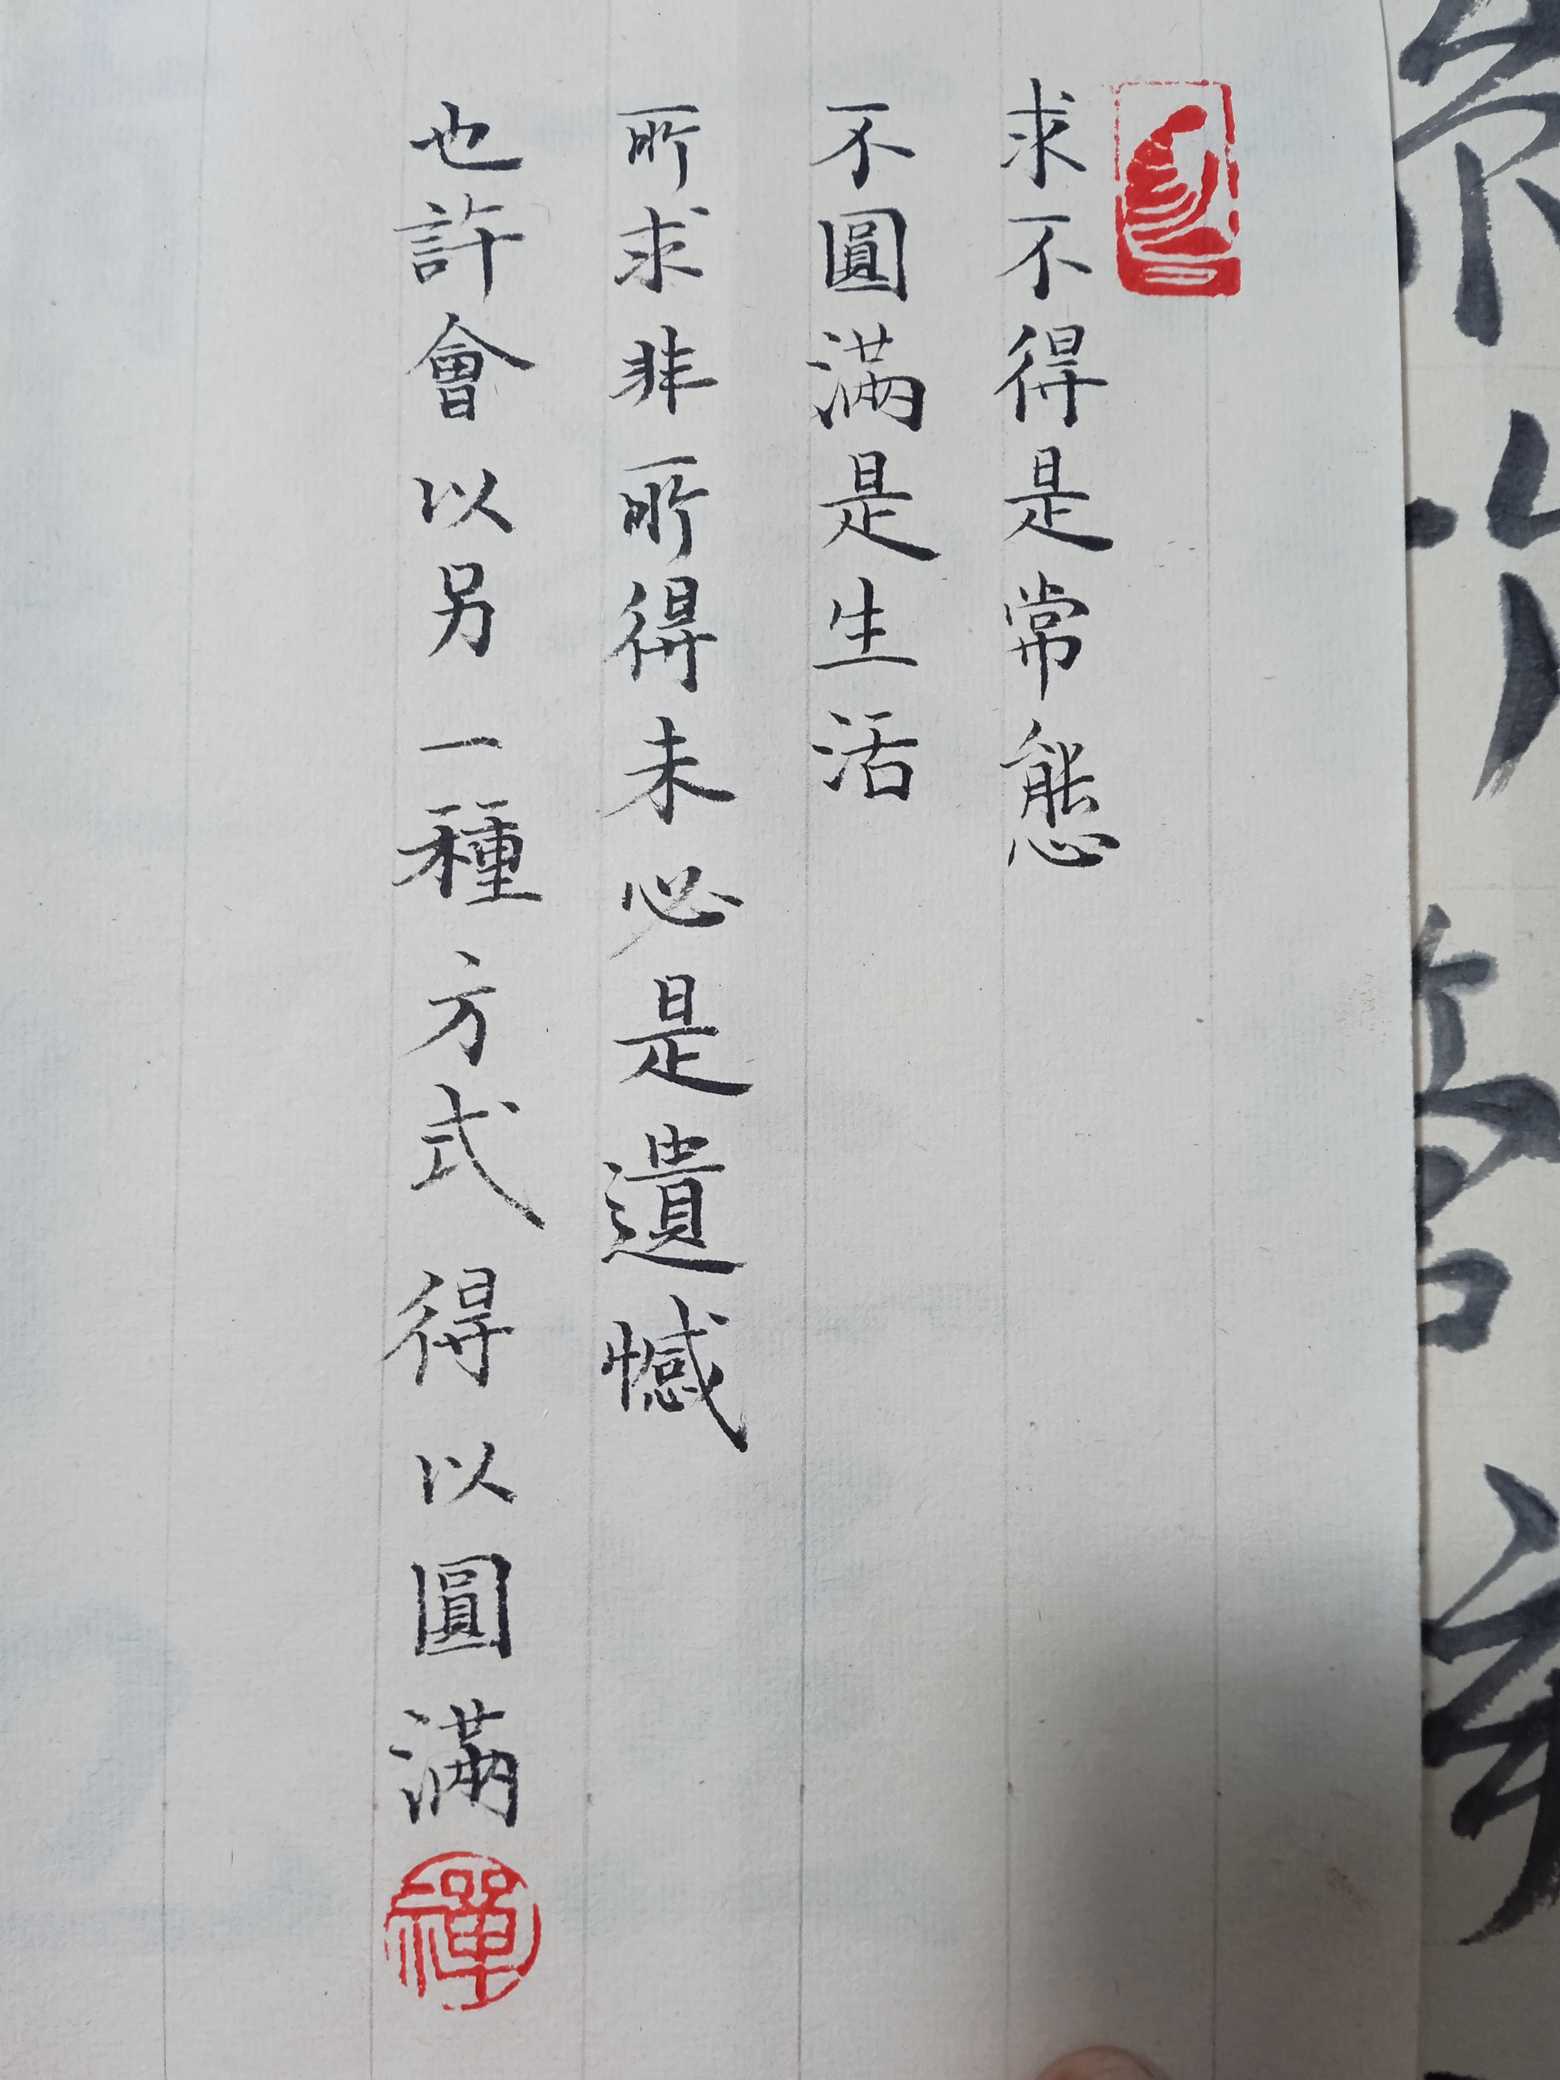 求不得是常態
不圓滿是生活
所求非所得未必是遺憾
也許會以另一種方式得以圓滿
禪